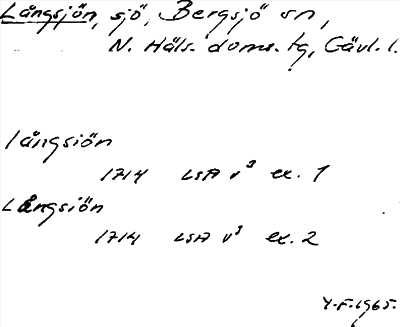 Långsjön, sjö, Bergsjö sn,
N. Häls. doms. tg, Gävl. l.
långsiön
1714 LSA v³ ex. 1
Långsiön
1714 LSA v³ ex. 2
Y.F. 1965.